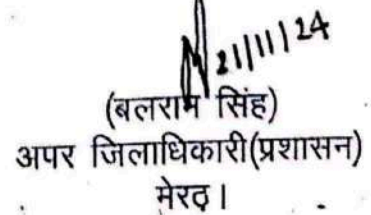 21/11/24
(बलराम सिंह)
अपर जिलाधिकारी(प्रशासन)
मेरठ।